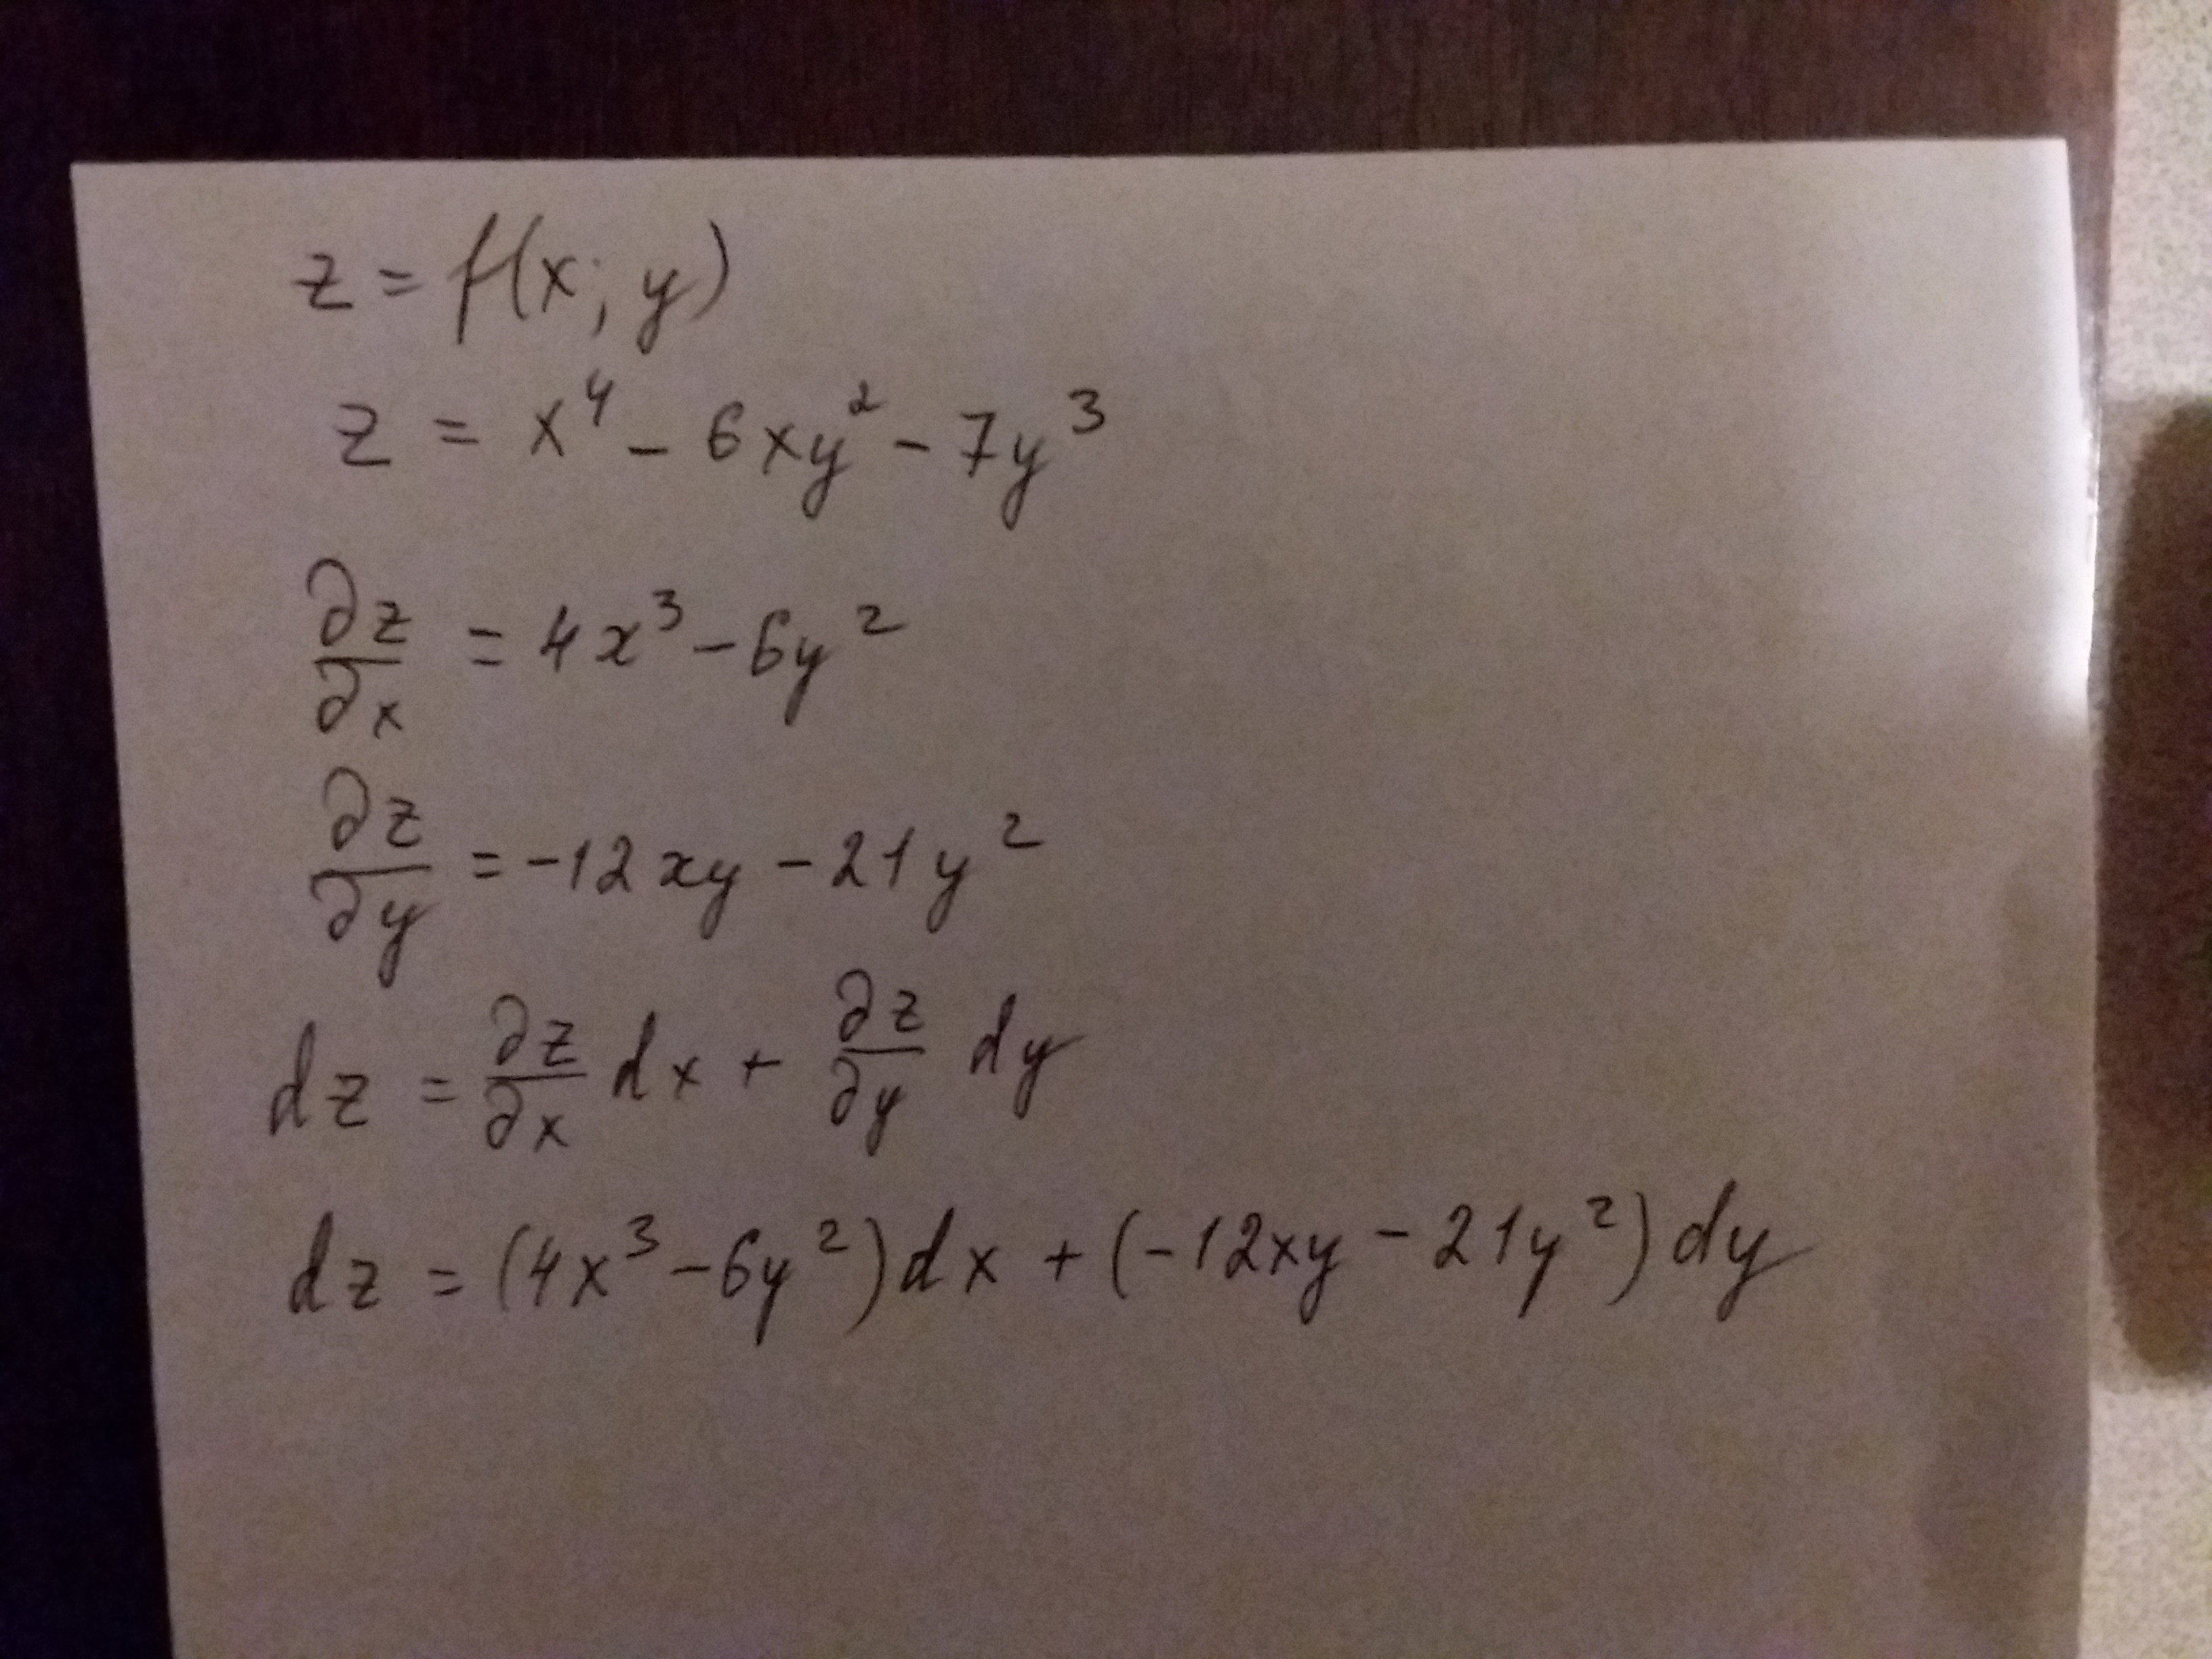 z = f(x; y)
z = x⁴ - 6xy² - 7y³
∂z/∂x = 4x³ - 6y²
∂z/∂y = -12xy - 21y²
dz = ∂z/∂x dx + ∂z/∂y dy
dz = (4x³ - 6y²)dx + (-12xy - 21y²)dy